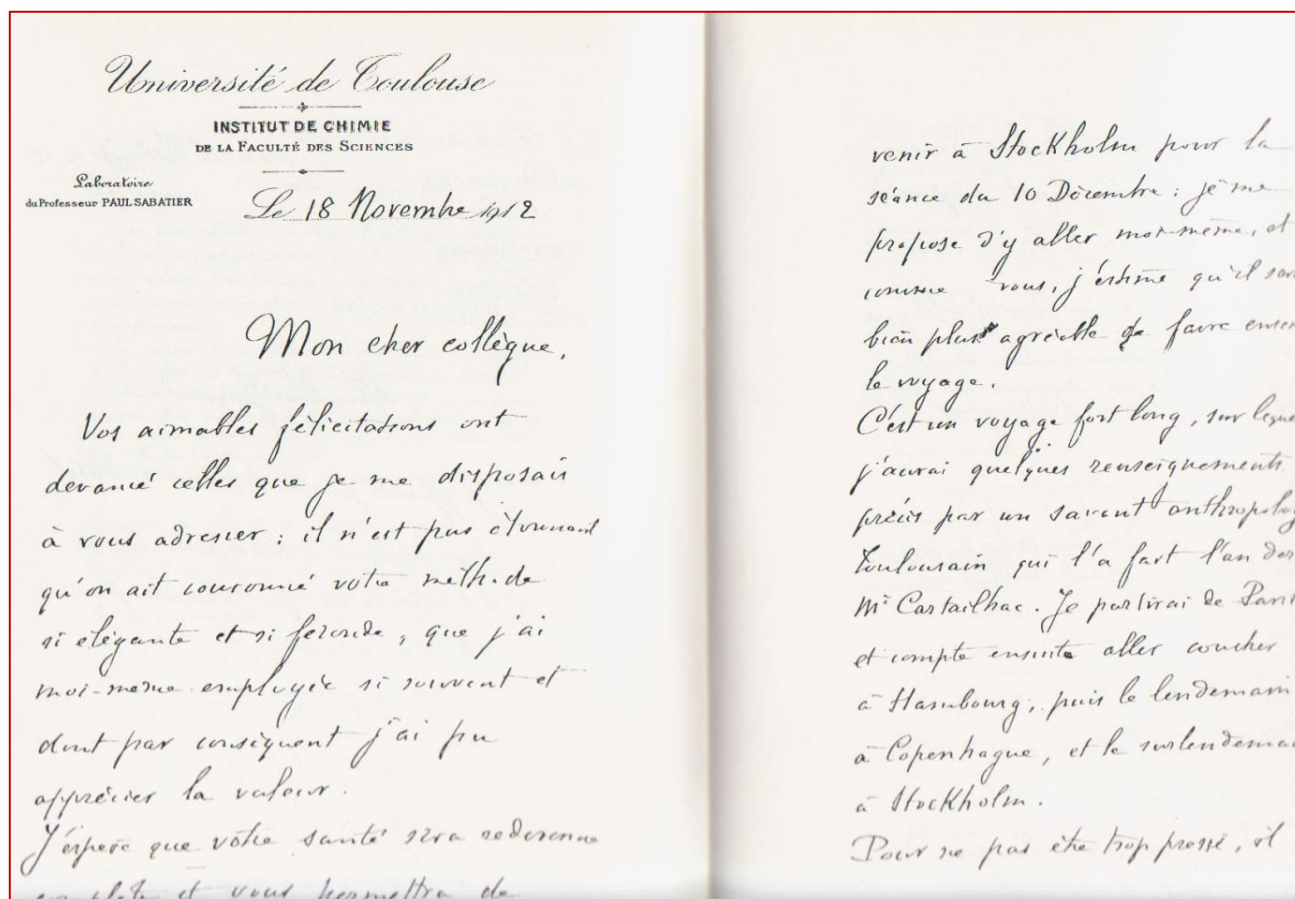 Université de Toulouse
INSTITUT DE CHIMIE
DE LA FACULTÉ DES SCIENCES
Laboratoire
du Professeur PAUL SABATIER
Le 18 Novembre 1912
Mon cher collègue,
Vos aimables félicitations ont
devancé celles que je me disposais
à vous adresser ; il n'est pas étonnant
qu'on ait couronné votre méthode
si élégante et si féconde, que j'ai
moi-même employée si souvent et
dont par conséquent j'ai pu
apprécier la valeur.
J'espère que votre santé sera redevenue
complète et vous permettra de
venir à Stockholm pour la
séance du 10 Décembre : je me
propose d'y aller moi-même, et
comme vous, j'estime qu'il
bien plus agréable de faire
le voyage.
C'est un voyage fort long, sur
j'aurai quelques renseignements
précis par un savant
Toulousain qui l'a fait l'an
Mr Cartailhac. Je partirai de
et compte ensuite aller coucher
à Hambourg, puis le lendemain
à Copenhague, et le
à Stockholm.
Pour ne pas être trop pressé, il